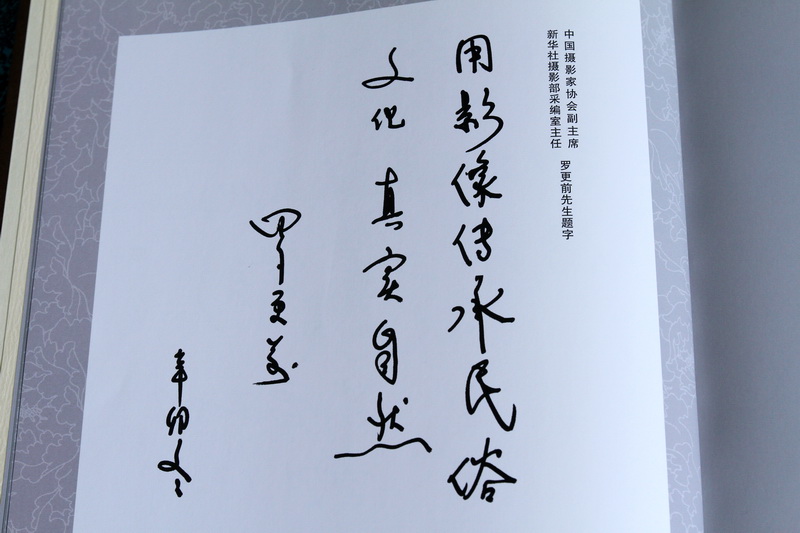 中国摄影家协会副主席
新华社摄影部采编室主任
罗更前先生题字
用影像传承民俗
文化 真实自然
罗更前
辛卯冬